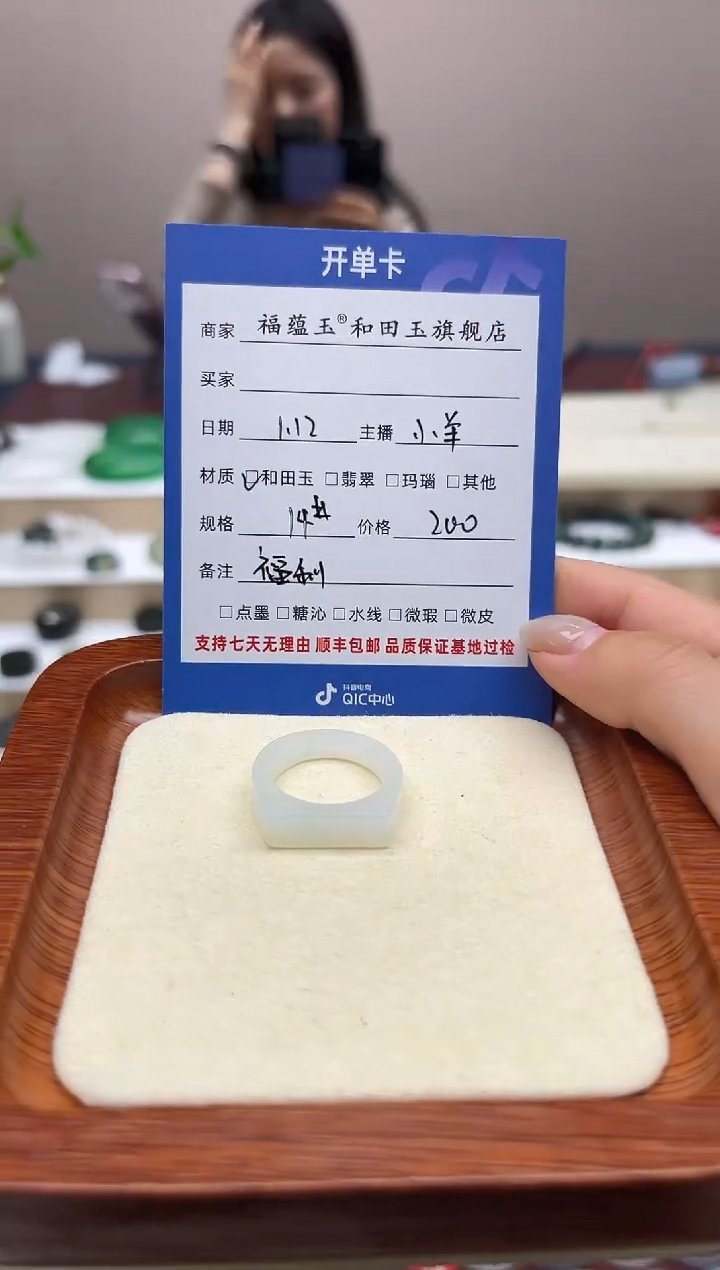 开单卡
商家 福蕴玉®和田玉旗舰店
买家
日期 1.12 主播 小羊
材质 ☑和田玉 □翡翠 □玛瑙 □其他
规格 14# 价格 200
备注 福利
□点墨 □糖沁 □水线 □微瑕 □微皮
支持七天无理由 顺丰包邮 品质保证基地过检
抖音电商
QIC中心